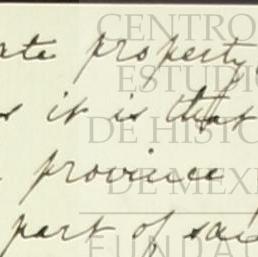 ate property
s it is that
province
part of said
CENTRO
ESTUDIO
DE HISTO
DE MEXI
FUNDA